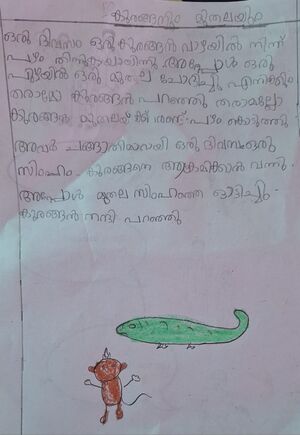 കുരങ്ങനും മുതലയും
ഒരു ദിവസം ഒരു കുരങ്ങൻ വാഴയിൽ നിന്ന്
പഴം തിന്നുകയായിന്നു അപ്പോൾ ഒരു
പുഴയിൽ ഒരു മുതല ചോദിച്ചു എനിക്കും
തരാമോ കുരങ്ങൻ പറഞ്ഞു തരാമല്ലോ
കുരങ്ങൻ മുതലയ്ക്ക് രണ്ട് പഴം കൊടുത്തു
അവർ ചങ്ങാതിമാരായി ഒരു ദിവസം ഒരു
സിംഹം കുരങ്ങനെ ആക്രമിക്കാൻ വന്നു
അപ്പോൾ മുതല സിംഹത്തെ ഓടിച്ചു
കുരങ്ങൻ നന്ദി പറഞ്ഞു